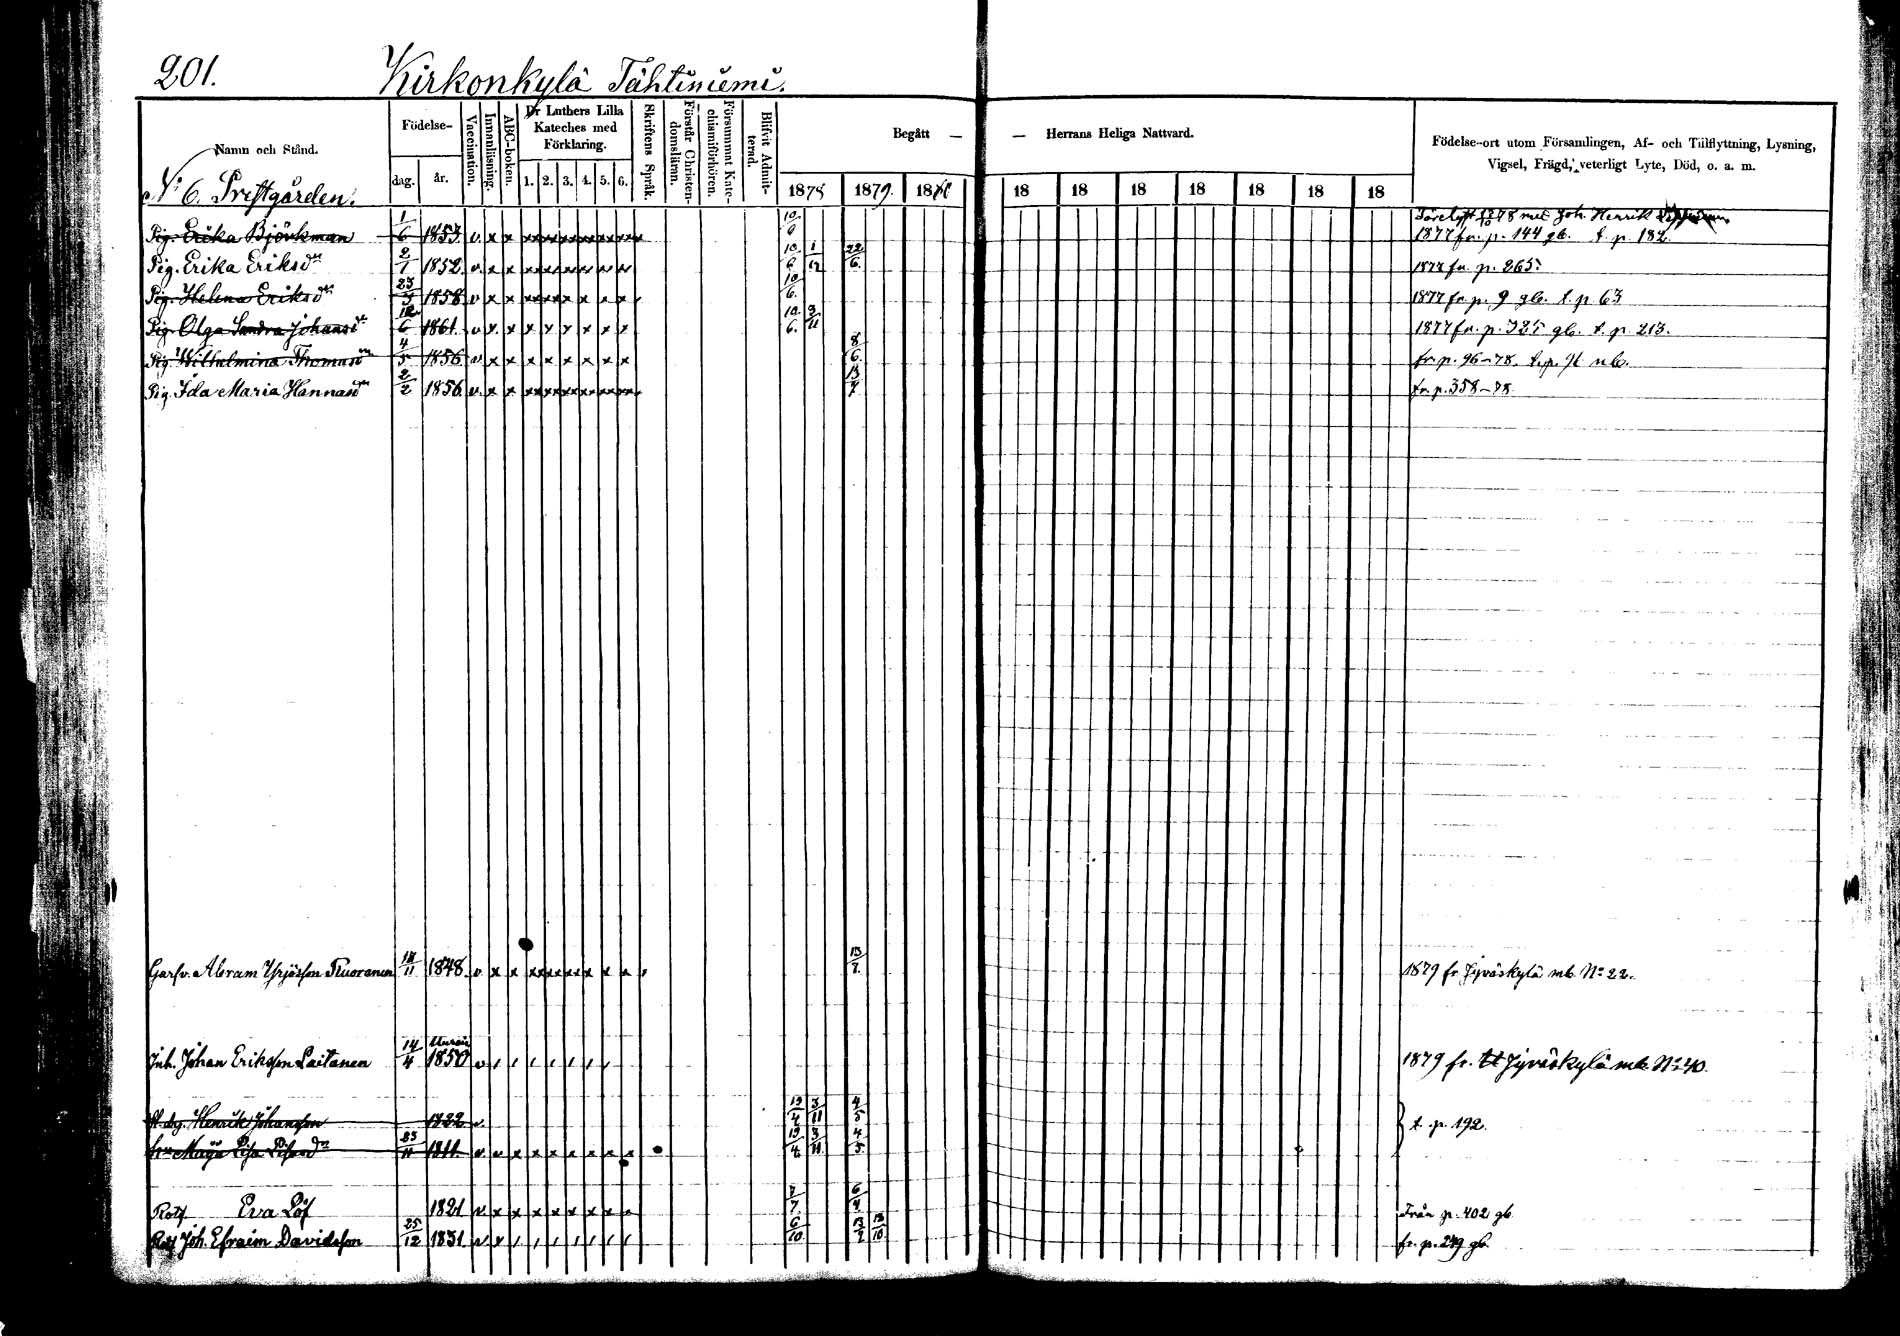 201. Kirkonkylä Tähtiniemi.
Namn och Stånd.
Födelse-
dag. år.
Vaccination.
Innanläsning.
ABC-boken.
Dr Luthers Lilla Kateches med Förklaring.
1. 2. 3. 4. 5. 6.
Skriftens Språk.
Förstår Christendomsläran.
Försummat Katechismiförhören.
Blifvit Admitterad.
Begått — — Herrans Heliga Nattvard.
1878 1879. 18 18 18 18 18 18 18 18
Födelse-ort utom Församlingen, Af- och Tillflyttning, Lysning,
Vigsel, Frägd, veterligt Lyte, Död, o. a. m.
No 6. Prestgården.
Pig. Erika Björkman 1/6 1853. v x x 10/6 1878 med Joh. Henrik
1877 fr. p. 144 gb. t. p. 182.
Pig. Erika Eriksdr 2/1 1852. v x x 10/6 1/12 22/6. 1877 fr. p. 265.
Pig. Helena Eriksdr 23/3 1858. v x x 10/6. 1877 fr. p. 9 gb. t. p 63
Pig. Olga Sandra Johansdr 12/6 1861. v x x x x x x x x 10/6. 3/11 1877 fr. p. 325 gb. t. p. 213.
Pig. Wilhelmina Thomasdr 4/5 1856 v x x x x x x x x 8/6. fr. p. 96-78. t. p. nb.
Pig. Ida Maria Hannasdr 2/2 1856. v x x 13/7 fr. p. 358-78.
Garfv. Abram Yrjösson Ruoranen 14/11 1848. v x x 13/7. 1879 fr Jyväskylä mb. No 22.
Inh. Johan Eriksson Laitanen 14/4 1850 v 1879 fr. Jyväskylä mb. No 40.
Henrik Johansson 1822 v 19/4 3/11 4/5
Maija Lisa 23/11 1811. v v x x x x x x x 19/4 3/11. 4/5. t. p. 192.
Rotf Eva Löf 1821 v x x x x x x x x 7/7. 6/4 Från p. 402 gb.
Rotf Joh. Efraim Davidsson 25/12 1831. v x 6/10. 13/7 12/10. fr. p. 249 gb.